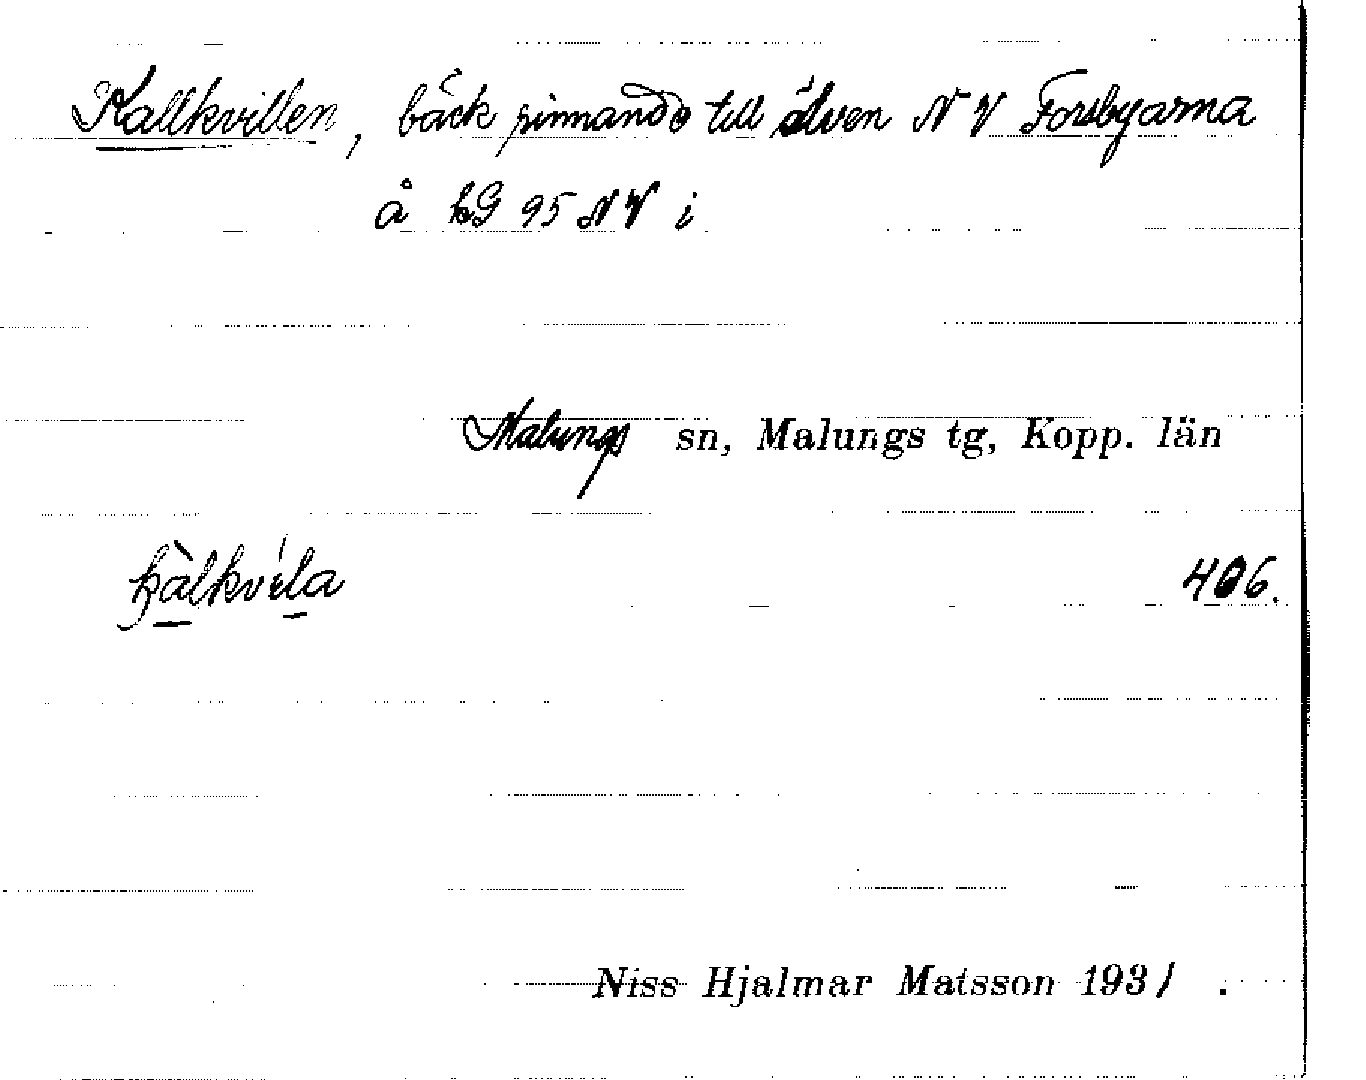 Kallkvillen, bäck rinnande till älven NV Forsbyarna
å kG 95 NV i
Malungs sn, Malungs tg, Kopp. län
kàlkvéla 406.
Niss Hjalmar Matsson 1931 .